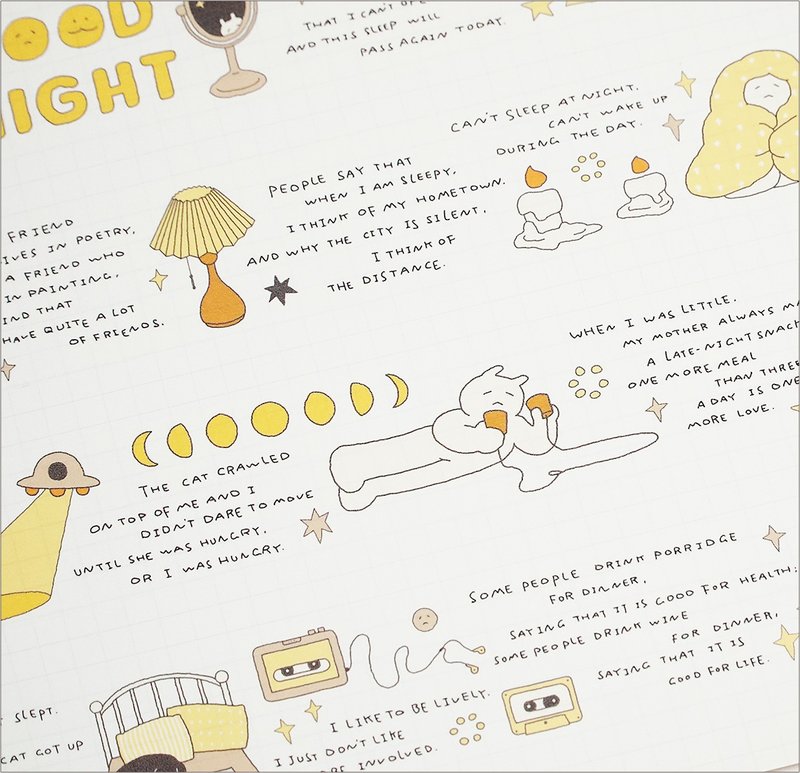 OOD
NIGHT
THAT I CAN'T
AND THIS SLEEP WILL
PASS AGAIN TODAY.
CAN'T SLEEP AT NIGHT.
CAN'T WAKE UP
DURING THE DAY.
PEOPLE SAY THAT
WHEN I AM SLEEPY,
I THINK OF MY HOMETOWN.
AND WHY THE CITY IS SILENT,
I THINK OF
THE DISTANCE.
FRIEND
IVES IN POETRY,
A FRIEND WHO
IN PAINTING,
IND THAT
HAVE QUITE A LOT
OF FRIENDS.
WHEN I WAS LITTLE,
MY MOTHER ALWAYS
A LATE-NIGHT SNACK
ONE MORE MEAL
THAN THREE
A DAY IS ONE
MORE LOVE.
THE CAT CRAWLED
ON TOP OF ME AND I
DIDN'T DARE TO MOVE
UNTIL SHE WAS HUNGRY,
OR I WAS HUNGRY.
SOME PEOPLE DRINK PORRIDGE
FOR DINNER,
SAYING THAT IT IS GOOD FOR HEALTH;
SOME PEOPLE DRINK WINE
FOR DINNER,
SAYING THAT IT IS
GOOD FOR LIFE.
SLEPT.
CAT GOT UP
I LIKE TO BE LIVELY.
I JUST DON'T LIKE
INVOLVED.